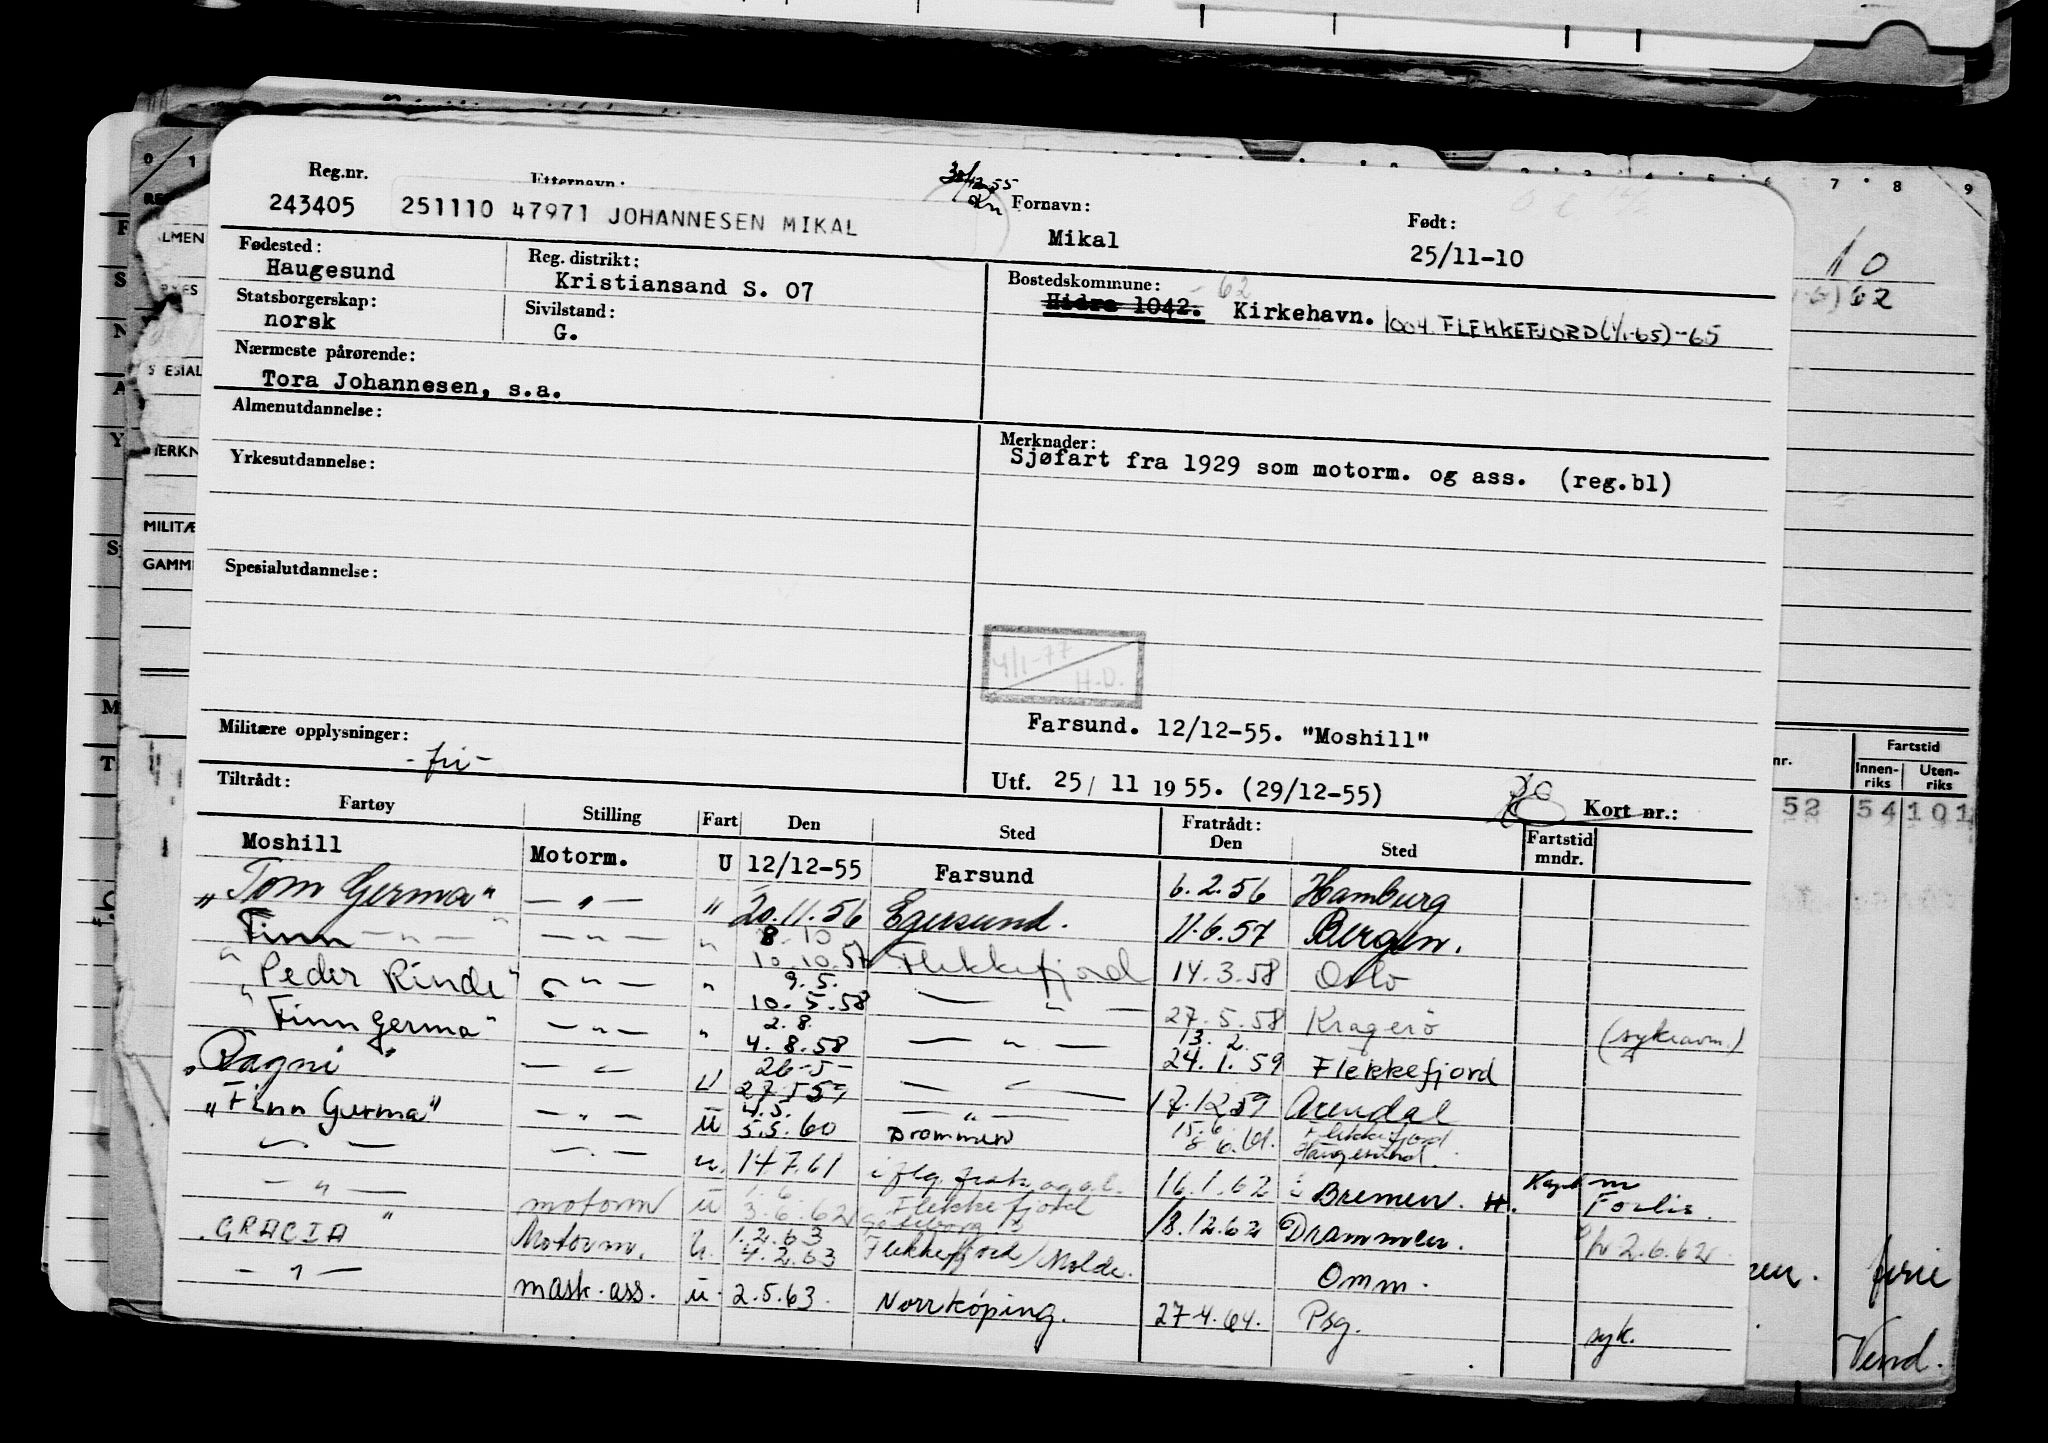 Reg.nr. Etternavn: 30/12.55 Fornavn: Født:
243405 251110 47971 JOHANNESEN MIKAL Mikal 25/11-10
Fødested: Reg. distrikt: Bostedskommune: -62
Haugesund Kristiansand S. 07 Hidra 1042. Kirkehavn. 1004 FLEKKEFJORD (1/1-65)-65
Statsborgerskap: Sivilstand:
norsk G.
Nærmeste pårørende:
Tora Johannesen, s.a.
Almenutdannelse: Merknader:
Sjøfart fra 1929 som motorm. og ass. (reg.bl)
Yrkesutdannelse:
Spesialutdannelse:
4/1-77
H.D.
Farsund. 12/12-55. "Moshill"
Militære opplysninger: - fri -
Utf. 25/ 11 1955. (29/12-55) Kort nr.:
Tiltrådt: Fratrådt:
Fartøy Stilling Fart Den Sted Den Sted Fartstid mndr.
Moshill Motorm. U 12/12-55 Farsund 6.2.56 Hamburg
"Tom Germa" — " — " 20.11.56 Egersund. 11.6.57 Bergen.
"Finn — " — " — " — " 8.10 10.10.57 Flekkefjord 14.3.58 Oslo
"Peder Rinde" — " — " 9.5. 10.5.58 — " — 27.5.58 Kragerö (sykeavm.)
"Finn Germa" — " — " 2.8. 4.8.58 — " — 13.2. 24.1.59 Flekkefjord
"Dagni" — " — U 26-5- 27.5 59 — " — 17.12 59 Arendal
"Finn Germa" — " — U 4.5. 5.5.60 — " — Drammen 15.6. 8.6.61. Flekkefjord Haugesund.
— " — — " — u. 14.7.61 i flg. frakt oppl. 16.1.62 Bremen. H. m
— " — motorm u 1.6. 3.6.62 Flekkefjord Göteborg 18.12.62 Drammen. Forlis. 2.6.62
"GRACIA" Motorm. U. 1.2.63 4.2.63 Flekkefjord/Molde. Omm.
— " — mask.ass. u. 2.5.63. Norrköping. 27.4.64. Psg. syk.
0 1 7 8 9
ALMEN
SPESIAL
MERKN
MILITÆ
GAMM
10
62
nr. Fartstid
Innen-riks Uten-riks
52 54 101
ferie
Vend.